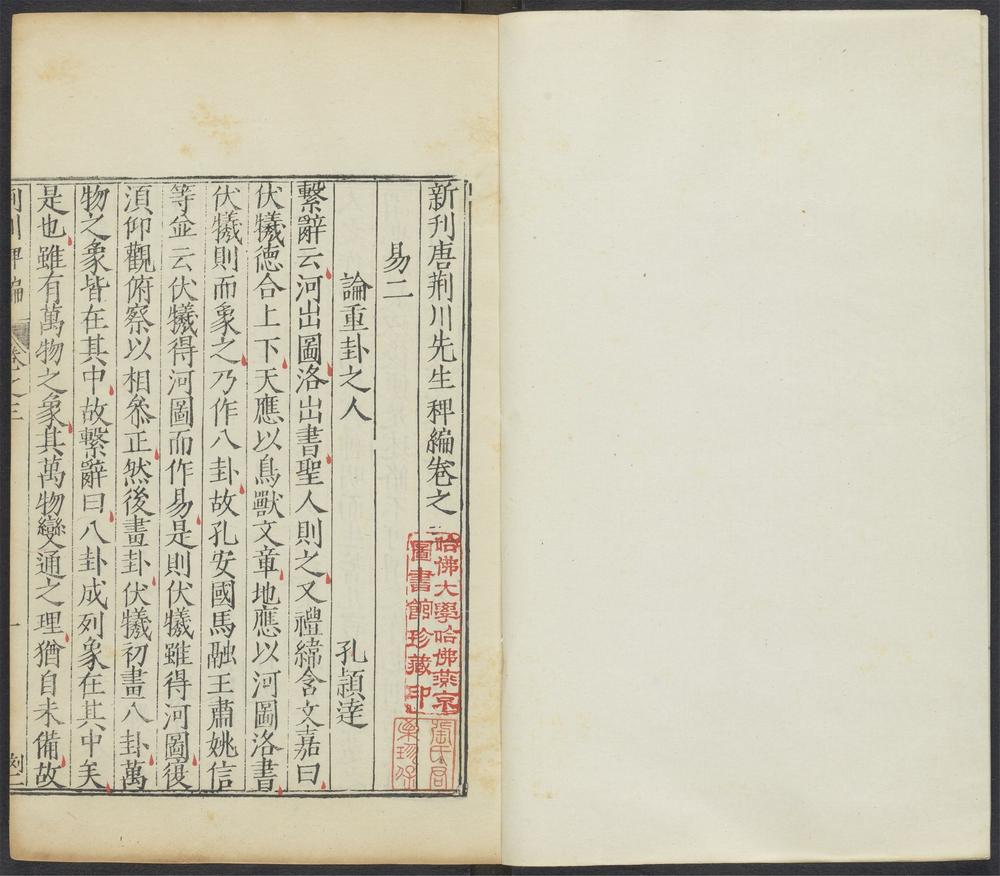 新刊唐荆川先生稗編卷之
易二
論重卦之人
孔頴逹
繫辭云河出圖洛出書聖人則之又禮緯含文嘉曰
伏犧德合上下天應以鳥獸文章地應以河圖洛書
伏犧則而象之乃作八卦故孔安國馬融王肅姚信
等並云伏犧得河圖而作易是則伏犧雖得河圖復
湏仰觀俯察以相叅正然後畫卦伏犧初畫八卦萬
物之象皆在其中故繫辭曰八卦成列象在其中矣
是也雖有萬物之象其萬物變通之理猶自未備故
荆川稗編
卷之三
一
哈佛大學哈佛燕京
圖書館珍藏印